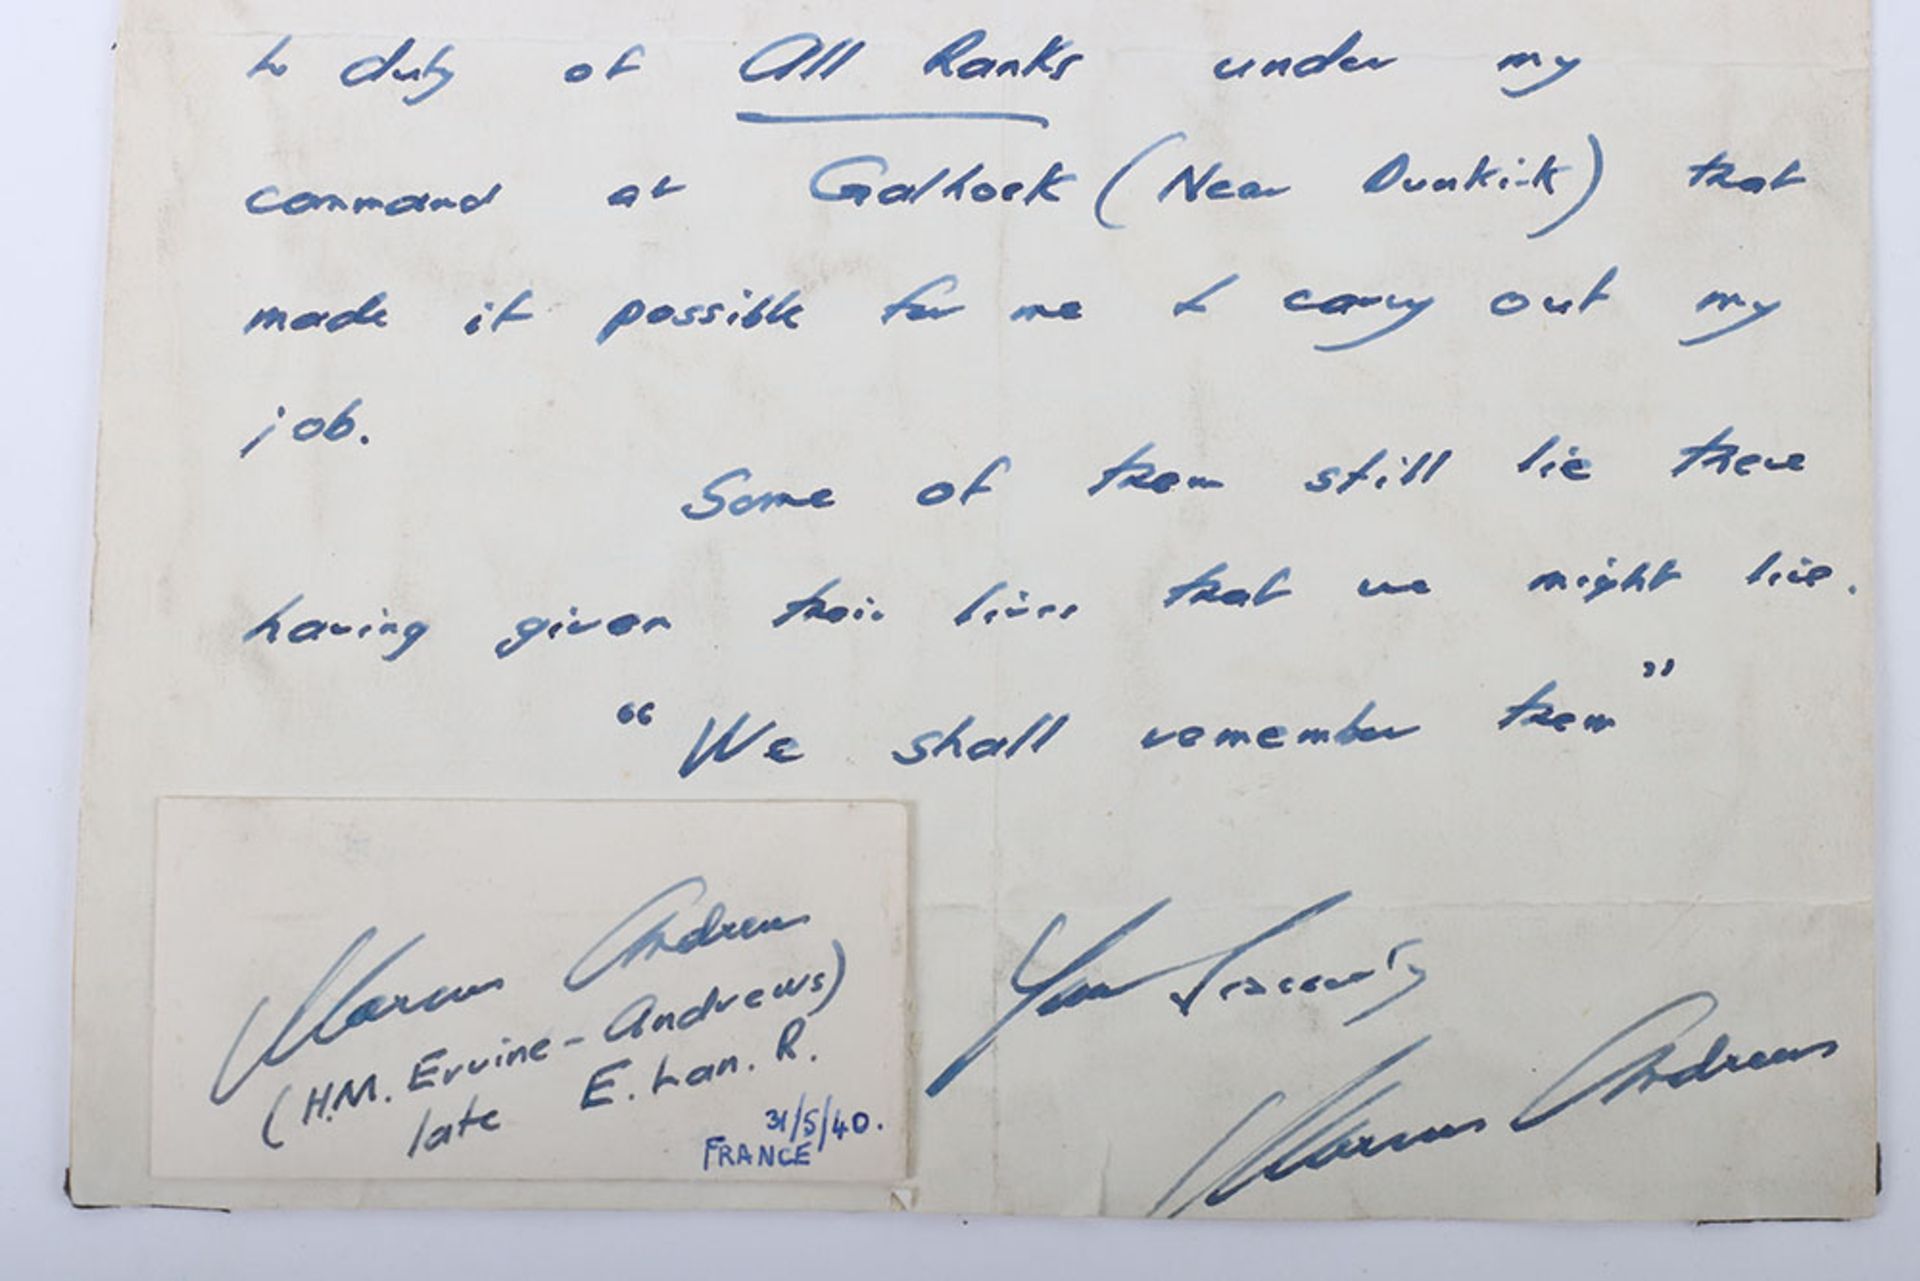 to duty of All Ranks under my
command at Galhoek (Near Dunkirk) that
made it possible for me to carry out my
job.
Some of them still lie there
having given their lives that we might live.
"We shall remember them"
Yours Sincerely
Marcus Andrews
Marcus Andrews
(H.M. Ervine-Andrews)
late E. Lan. R.
31/5/40.
FRANCE